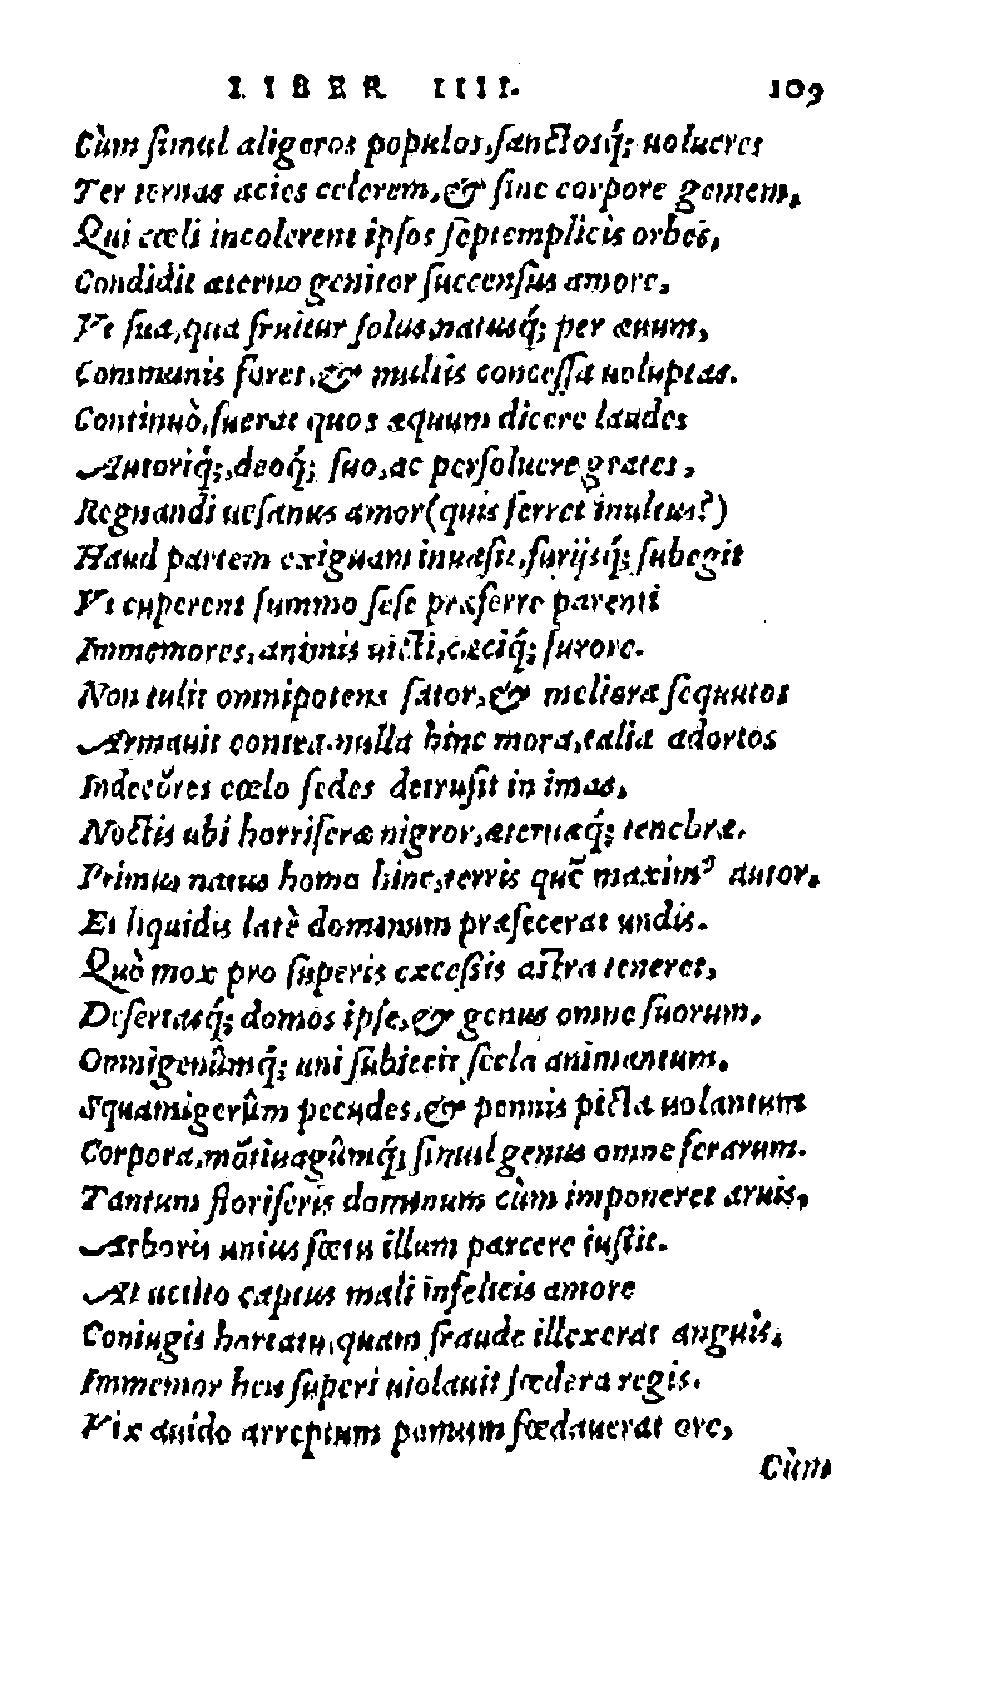 LIBER IIII. 109
Cùm ſimul aligeros populos, ſanctosq́; uolucres
Ter ternas acies celerem, & ſine corpore gentem,
Qui cœli incolerent ipſos ſeptemplicis orbeis,
Condidit æterno genitor ſuccenſus amore,
Vt ſua, qua fruitur ſolus, natusq́; per æuum,
Communis foret, & multis conceſſa uoluptas.
Continuò, fuerat quos æquum dicere laudes
Autoriq́;, deoq́; ſuo, ac perſoluere grates,
Regnandi ueſanus amor (quis ferret inultus?)
Haud partem exiguam inuaſit, furijsq́; ſubegit
Vt cuperent ſummo ſeſe præferre parenti
Immemores, animis uicti, cæciq́; furore.
Non tulit omnipotens ſator, & meliora ſequutos
Armauit contra. nulla hinc mora, talia adortos
Indecŏres cœlo ſedes detruſit in imas,
Noctis ubi horriferæ nigror, æternæq́; tenebræ.
Primus natus homo hinc, terris quẽ maximꝰ autor,
Et liquidis latè dominum præfecerat undis.
Quò mox pro ſuperis exceſsis aſtra teneret,
Deſertasq́; domos ipſe, & genus omne ſuorum,
Omnigenûmq́; uni ſubiecit ſecla animantum.
Squamigerûm pecudes, & pennis picta uolantum
Corpora, mõtiuagûmq́; ſimul genus omne ferarum.
Tantum floriferis dominum cùm imponeret aruis,
Arboris unius fœtu illum parcere iuſsit.
At uetito captus mali infelicis amore
Coniugis hortatu, quam fraude illexerat anguis,
Immemor heu ſuperi uiolauit fœdera regis.
Vix auido arreptum pomum fœdauerat ore,
Cùm